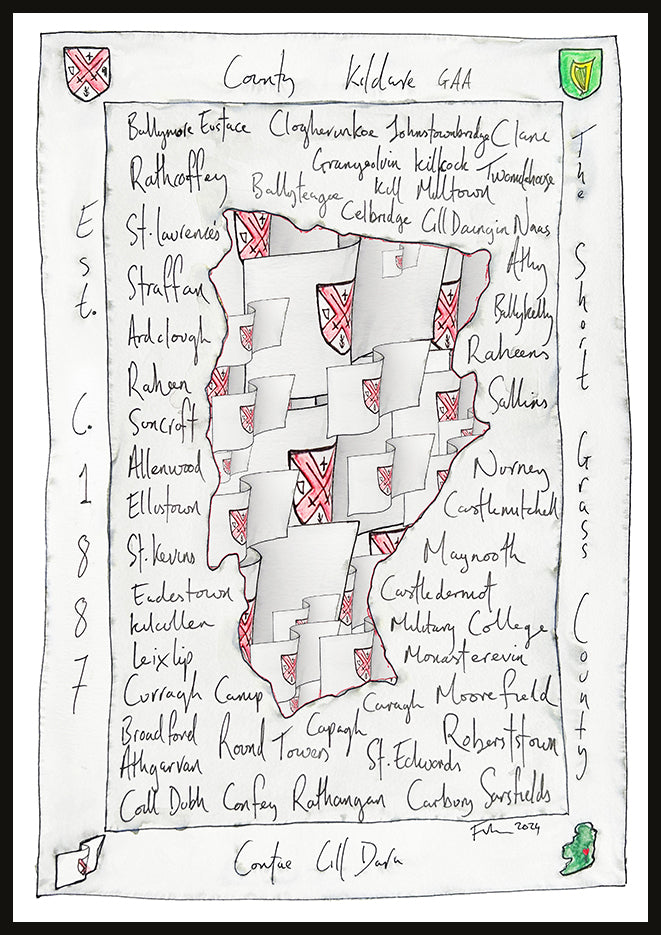 County Kildare GAA
Est. C. 1887
The Short Grass County
Ballymore Eustace Clogherinkoe Johnstownbridge Clane
Rathcoffey Grangenolvin Kilcock Twomilehouse
Ballyteague Kill Milltown
St. Lawrence's Celbridge Cill Daingin Naas
Straffan Athy
Ballykelly
Ardclough Raheens
Raheen Sallins
Suncroft
Allenwood Nurney
Ellistown Castlemitchell
St. Kevins Maynooth
Eadestown Castledermot
Kilcullen Military College
Leixlip Monasterevin
Curragh Camp Caragh Moorefield
Broadford Round Towers Capagh Roberststown
Athgarvan St. Edwards
Coill Dubh Confey Rathangan Carbury Sarsfields
2024
Contae Cill Dara